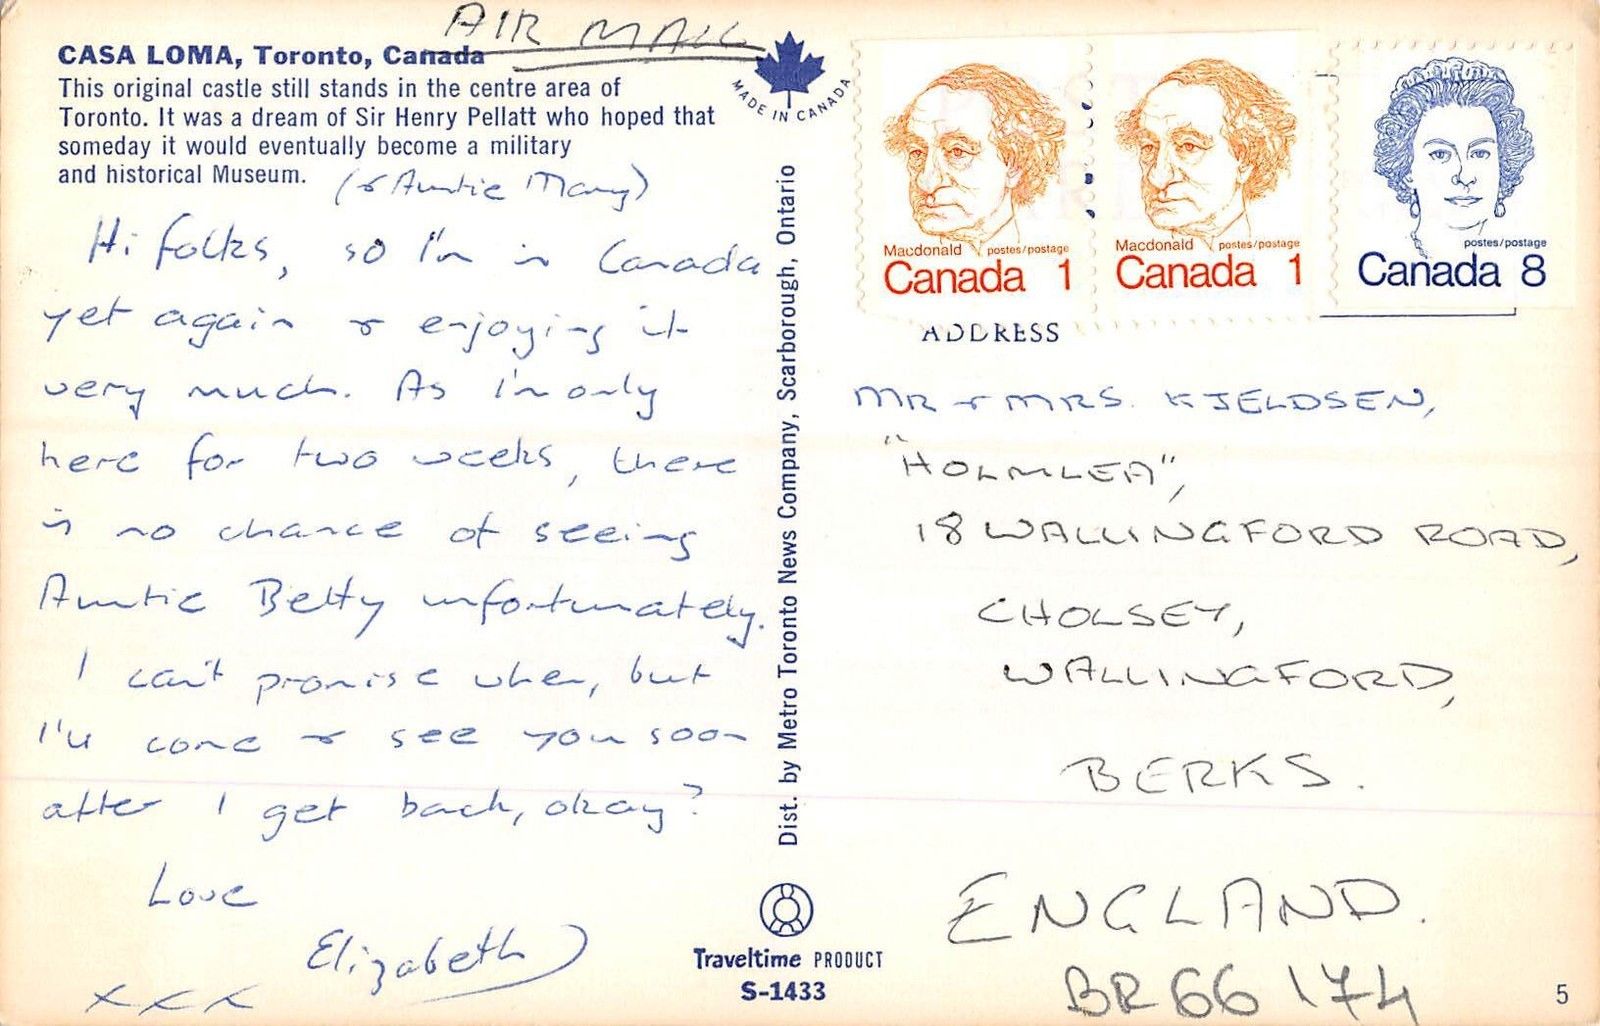 AIR MAIL
CASA LOMA, Toronto, Canada
This original castle still stands in the centre area of
Toronto. It was a dream of Sir Henry Pellatt who hoped that
someday it would eventually become a military
and historical Museum.
(& Auntie Mary)
Hi folks, so I'm in Canada
yet again & enjoying it
very much. As I'm only
here for two weeks, there
is no chance of seeing
Auntie Betty unfortunately.
I can't promise when, but
I'll come & see you soon
after I get back, okay?
Love
Elizabeth
xxx
MADE IN CANADA
Dist. by Metro Toronto News Company, Scarborough, Ontario
Traveltime PRODUCT
S-1433
Macdonald postes/postage
Canada 1
Macdonald postes/postage
Canada 1
postes/postage
Canada 8
ADDRESS
MR & MRS. KJELDSEN,
"HOLMLEA",
18 WALLINGFORD ROAD,
CHOLSEY,
WALLINGFORD,
BERKS.
ENGLAND.
BR66 174
5